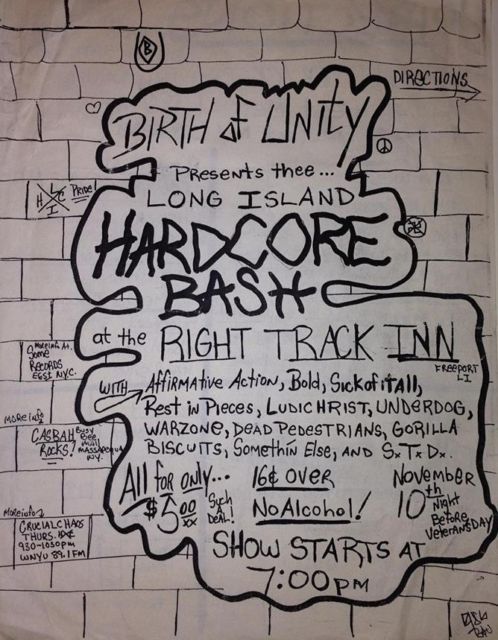 DIRECTIONS
B
BIRTH of UNITY
Presents thee...
LONG ISLAND
HARDCORE
BASH
at the RIGHT TRACK INN
FREEPORT
LI
WITH Affirmative Action, Bold, Sick of it All,
Rest in Pieces, LUDICHRIST, UNDERDOG,
WARZONE, DEAD PEDESTRIANS, GORILLA
BISCUITS, Somethin Else, AND S.T.D.
All for only...
$5.00
XX
Such
A
Deal!
16 & OVER
No Alcohol!
November
10th
Night
Before
Veterans Day
SHOW STARTS AT
7:00 PM
L
H C
I
Pride!
More info At.
Some
RECORDS
E 6 St N.Y.C.
More info
CASBAH
ROCKS!
Busy
Bee
Mall
MASSAPEQUA
N.Y.
More info
CRUCIAL CHAOS
THURS.
930-1030PM
WNYU 89.1 FM